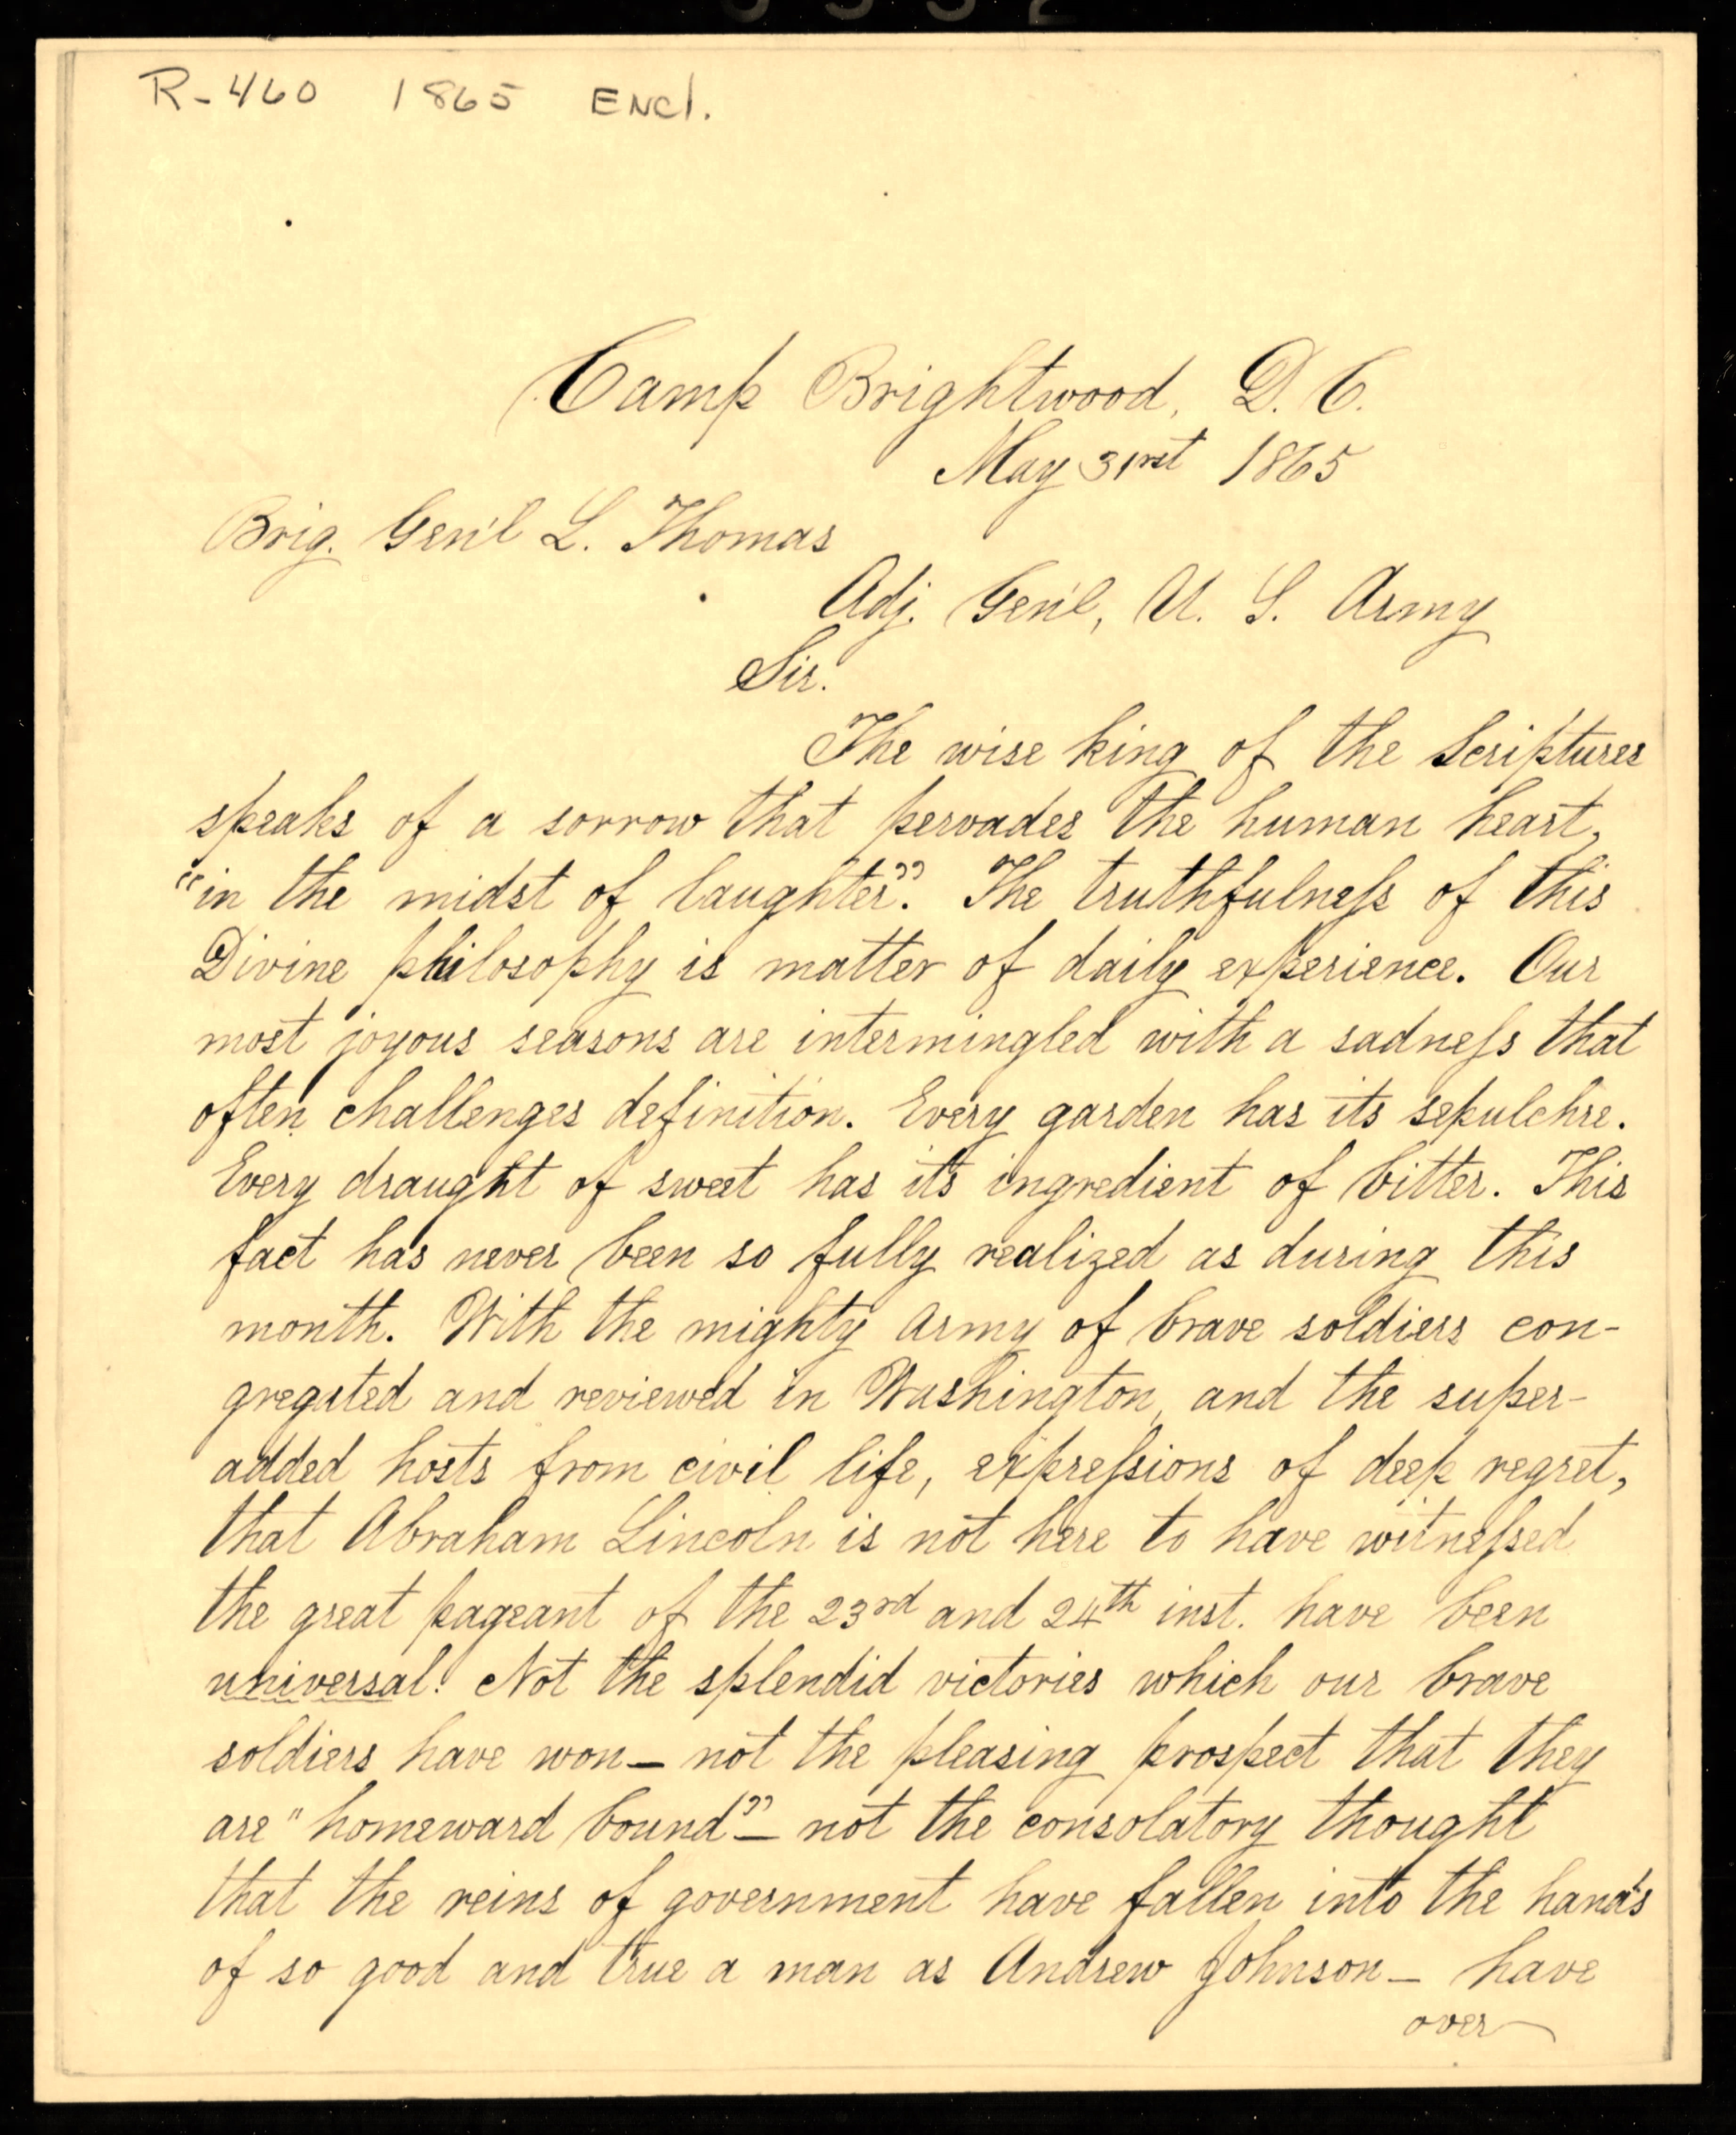 R-460 1865 Encl.
Camp Brightwood, D. C.
May 31rst 1865
Brig. Gen'l L. Thomas
Adj. Gen'l, U. S. Army
Sir.
The wise king of the Scriptures
speaks of a sorrow that pervades the human heart,
"in the midst of laughter". The truthfulness of this
Divine philosophy is matter of daily experience. Our
most joyous seasons are intermingled with a sadness that
often challenges definition. Every garden has its sepulchre.
Every draught of sweet has its ingredient of bitter. This
fact has never been so fully realized as during this
month. With the mighty army of brave soldiers con-
gregated and reviewed in Washington, and the super-
added hosts from civil life, expressions of deep regret,
that Abraham Lincoln is not here to have witnessed
the great pageant of the 23rd and 24th inst. have been
universal! Not the splendid victories which our brave
soldiers have won — not the pleasing prospect that they
are "homeward bound" — not the consolatory thought
that the reins of government have fallen into the hands
of so good and true a man as Andrew Johnson — have
over